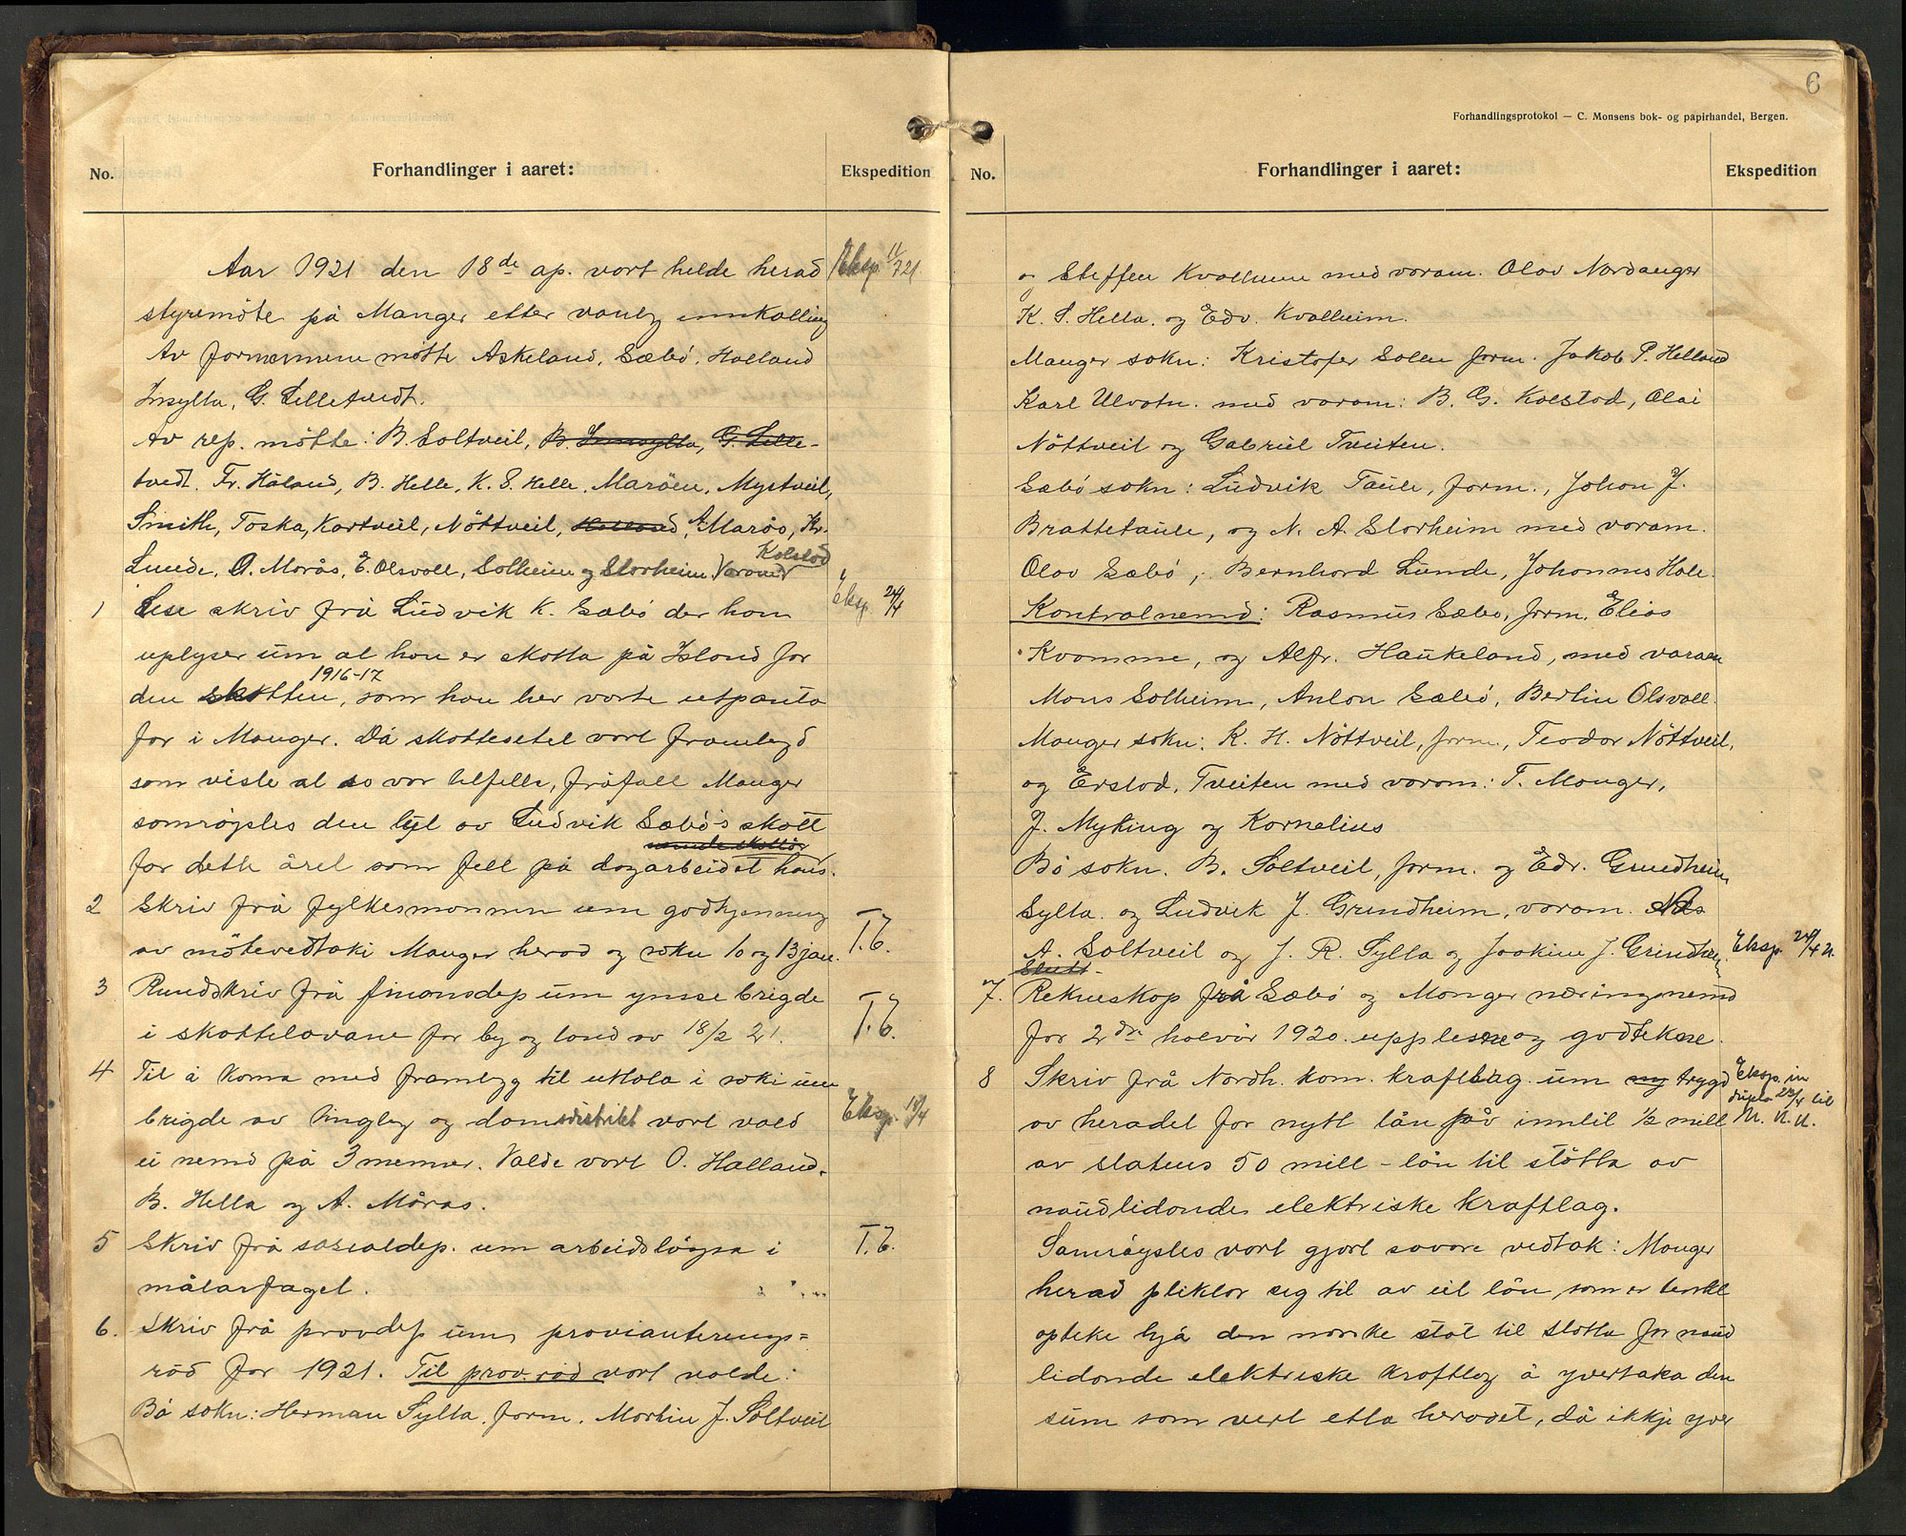 No.
Forhandlinger i aaret:
Ekspedition
Aar 1921 den 18de ap. vart helde herad
Eksp. 11/7 21.
styremöte på Manger etter vanleg innkalling
Av formennene mötte Askeland, Sæbö, Halland
Insylta, G. Lilletvedt.
Av rep. mötte: B. Soltveil, B. Innsylta, G. Lille-
tvedt. Fr. Håland, B. Helle, K. S. Helle, Maröen, Mystveil,
Smith, Toska, Kartveil, Nöttveil, Halland, A. Marås, Kr.
Kolstad
Lunde, O. Morås, E. Olsvoll, Solheim og Storheim, Varamd
1 Lese skriv frå Ludvik K. Sæbö der han
Eksp. 24/4
uplyser um at han er skatta på Island for
1916-17
den skatten, som han hev vorte utpanta
for i Manger. Då skattesetel vart framlegd
som viste at so var tilfelle, fråfall Manger
samröystes den lyt av Ludvik Sæbö's skatt
samde skattår
for dette året som fell på dagarbeidet hans.
2 Skriv frå fylkesmannen um godkjenning
av mötevedtaki Manger herad og sokn 10 og 13 jan.
T.E.
3 Rundskriv frå finansdep um ymse brigde
i skattelovane for by og land av 18/2 21.
T.E.
4 Til å koma med framlegg til uttala i saki um
brigde av tingleg og domsdistrikt vart vald
Eksp. 18/4
ei nemd på 3 menner. Valde vart O. Halland,
B. Hella og A. Måras.
5 Skriv frå sosialdep. um arbeidslöysa i
T.E.
målarfaget.
6. Skriv frå provdep um proviantерings=
råd for 1921. Til prov.råd vart valde:
Bö sokn: Herman Sylta, form. Martin J. Soltveil
6
Forhandlingsprotokol — C. Monsens bok- og papirhandel, Bergen.
No.
Forhandlinger i aaret:
Ekspedition
og Steffen Kvalheim med varam. Olav Nordanger
K. S. Hella, og Edv. Kvalheim.
Manger sokn: Kristofer Solem form. Jakob P. Helland
Karl Ulvatn. med varam: B. G. Kolstad, Olai
Nöttveil og Gabriel Tveiten.
Sæbö sokn: Ludvik Taule, form., Johan J.
Brattetaule, og N. A. Storheim med varam.
Olav Sæbö, Bernhard Lunde, Johannes Hole.
Kontrolnemd: Rasmus Sæbö, form, Elias
Kvamme, og Alfr. Haukeland, med varam
Mons Solheim, Anton Sæbö, Bertin Olsvoll.
Manger sokn: K. H. Nöttveil, form., Teodor Nöttveil,
og Erstad, Tveiten med varam: T. Manger,
J. Myking og Kornelius
Bö sokn. B. Soltveil, form. og Edv. Grindheim
Sylta. og Ludvik J. Grindheim, varam.
A. Soltveil og J. R. Sylta og Joakim J. Grindheim
Eksp. 24/4 21.
7. Rekneskap frå Sæbö og Manger næringsnemd
for 2dre halvår 1920. upplesne og godtekne.
8 Skriv frå Nordh. kom. kraftlag um ny trygd
Eksp. in
duplo 23/4 til
av heradet for nytt lån på innlil 1/2 mill
N. K. K.
av statens 50 mill-lån til stötta av
naudlidande elektriske kraftlag.
Samröystes vart gjort sovore vedtak: Manger
herad pliktar seg til av eit lån, som er tenkt
opteke hjå den norske stat til stötta for naud
lidande elektriske kraftlag å yvertaka den
sum som vert etla heradet, då ikkje yver